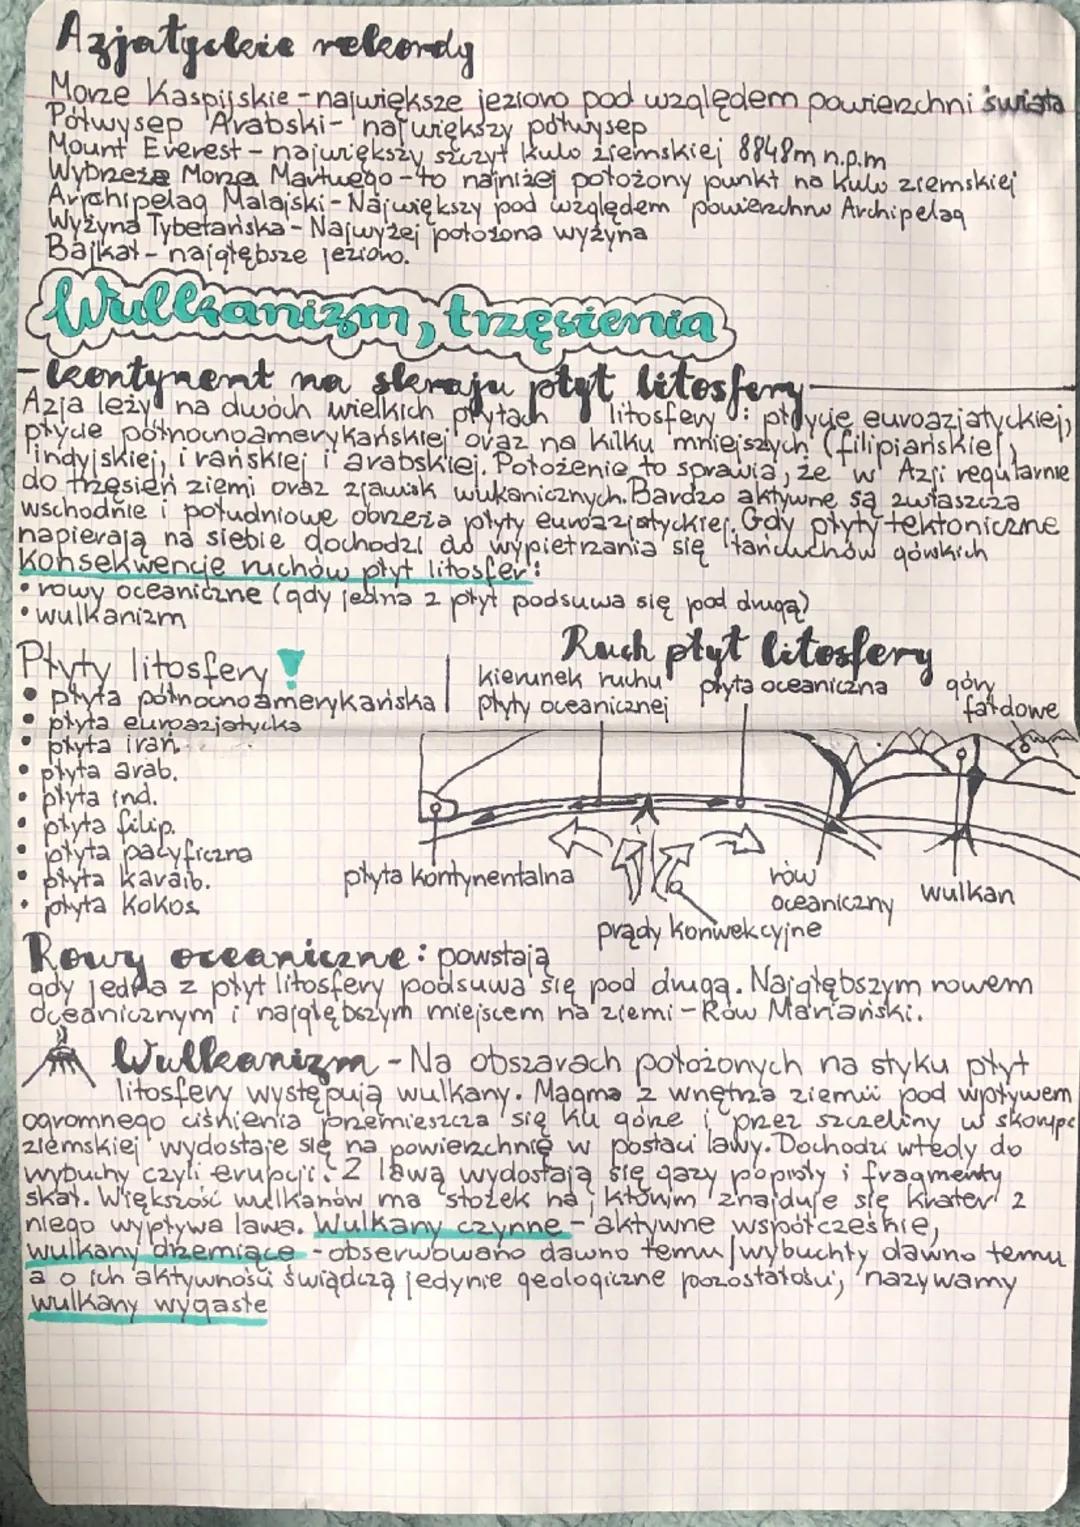 Azjatyckie rekordy
Morze Kaspijskie - największe jezioro pod względem powierzchni świata
Półwysep Arabski - największy półwysep
Mount Everest - największy szczyt kulo ziemskiej 8848m n.p.m
Wybrzeże Morza Martwego - to najniżej położony punkt na kulo ziemskiej
Archipelag Malajski - Największy pod względem powierzchno Archipelag
Wyżyna Tybetańska - Najwyżej położona wyżyna
Bajkał - najgłębsze jezioro.
Wulkanizm, trzęsienia
- kontynent na skraju płyt litosfery
Azja leży na dwóch wielkich płytach litosfery: płycie euroazjatyckiej,
płycie północnoamerykańskiej oraz na kilku mniejszych (filipiańskiej,
indyjskiej, irańskiej i arabskiej. Położenie to sprawia, że w Azji regularnie
do trzęsień ziemi oraz zjawisk wukanicznych. Bardzo aktywne są zwłaszcza
wschodnie i południowe obrzeża płyty euroazjatyckiej. Gdy płyty tektoniczne
napierają na siebie dochodzi do wypiętrzania się łańcuchów górkich
Konsekwencje ruchów płyt litosfer:
• rowy oceaniczne (gdy jedna z płyt podsuwa się pod drugą)
• wulkanizm
Płyty litosfery!
• płyta północnoamerykańska
• płyta euroazjatycka
• płyta irań.
• płyta arab.
• płyta ind.
• płyta filip.
• płyta pacyficzna
• płyta karaib.
• płyta kokos
Ruch płyt litosfery
kierunek ruchu
płyty oceanicznej
płyta oceaniczna
góry
fałdowe
płyta kontynentalna
prądy konwekcyjne
rów
oceaniczny
wulkan
Rowy oceaniczne: powstają
gdy jedna z płyt litosfery podsuwa się pod drugą. Najgłębszym rowem
oceanicznym i najgłębszym miejscem na ziemi - Rów Mariański.
Wulkanizm - Na obszarach położonych na styku płyt
litosfery występują wulkany. Magma z wnętrza ziemii pod wpływem
ogromnego ciśnienia przemieszcza się ku górze i przez szczeliny w skorupe
ziemskiej wydostaje się na powierzchnię w postaci lawy. Dochodzi wtedy do
wybuchy czyli erupcji. Z lawą wydostają się gazy popioły i fragmenty
skał. Większość wulkanów ma stożek na, którym znajduje się krater z
niego wypływa lawa. Wulkany czynne - aktywne współcześnie,
wulkany drzemiące - obserwowano dawno temu / wybuchły dawno temu
a o ich aktywności świadczą jedynie geologiczne pozostałości, nazywamy
wulkany wygasłe